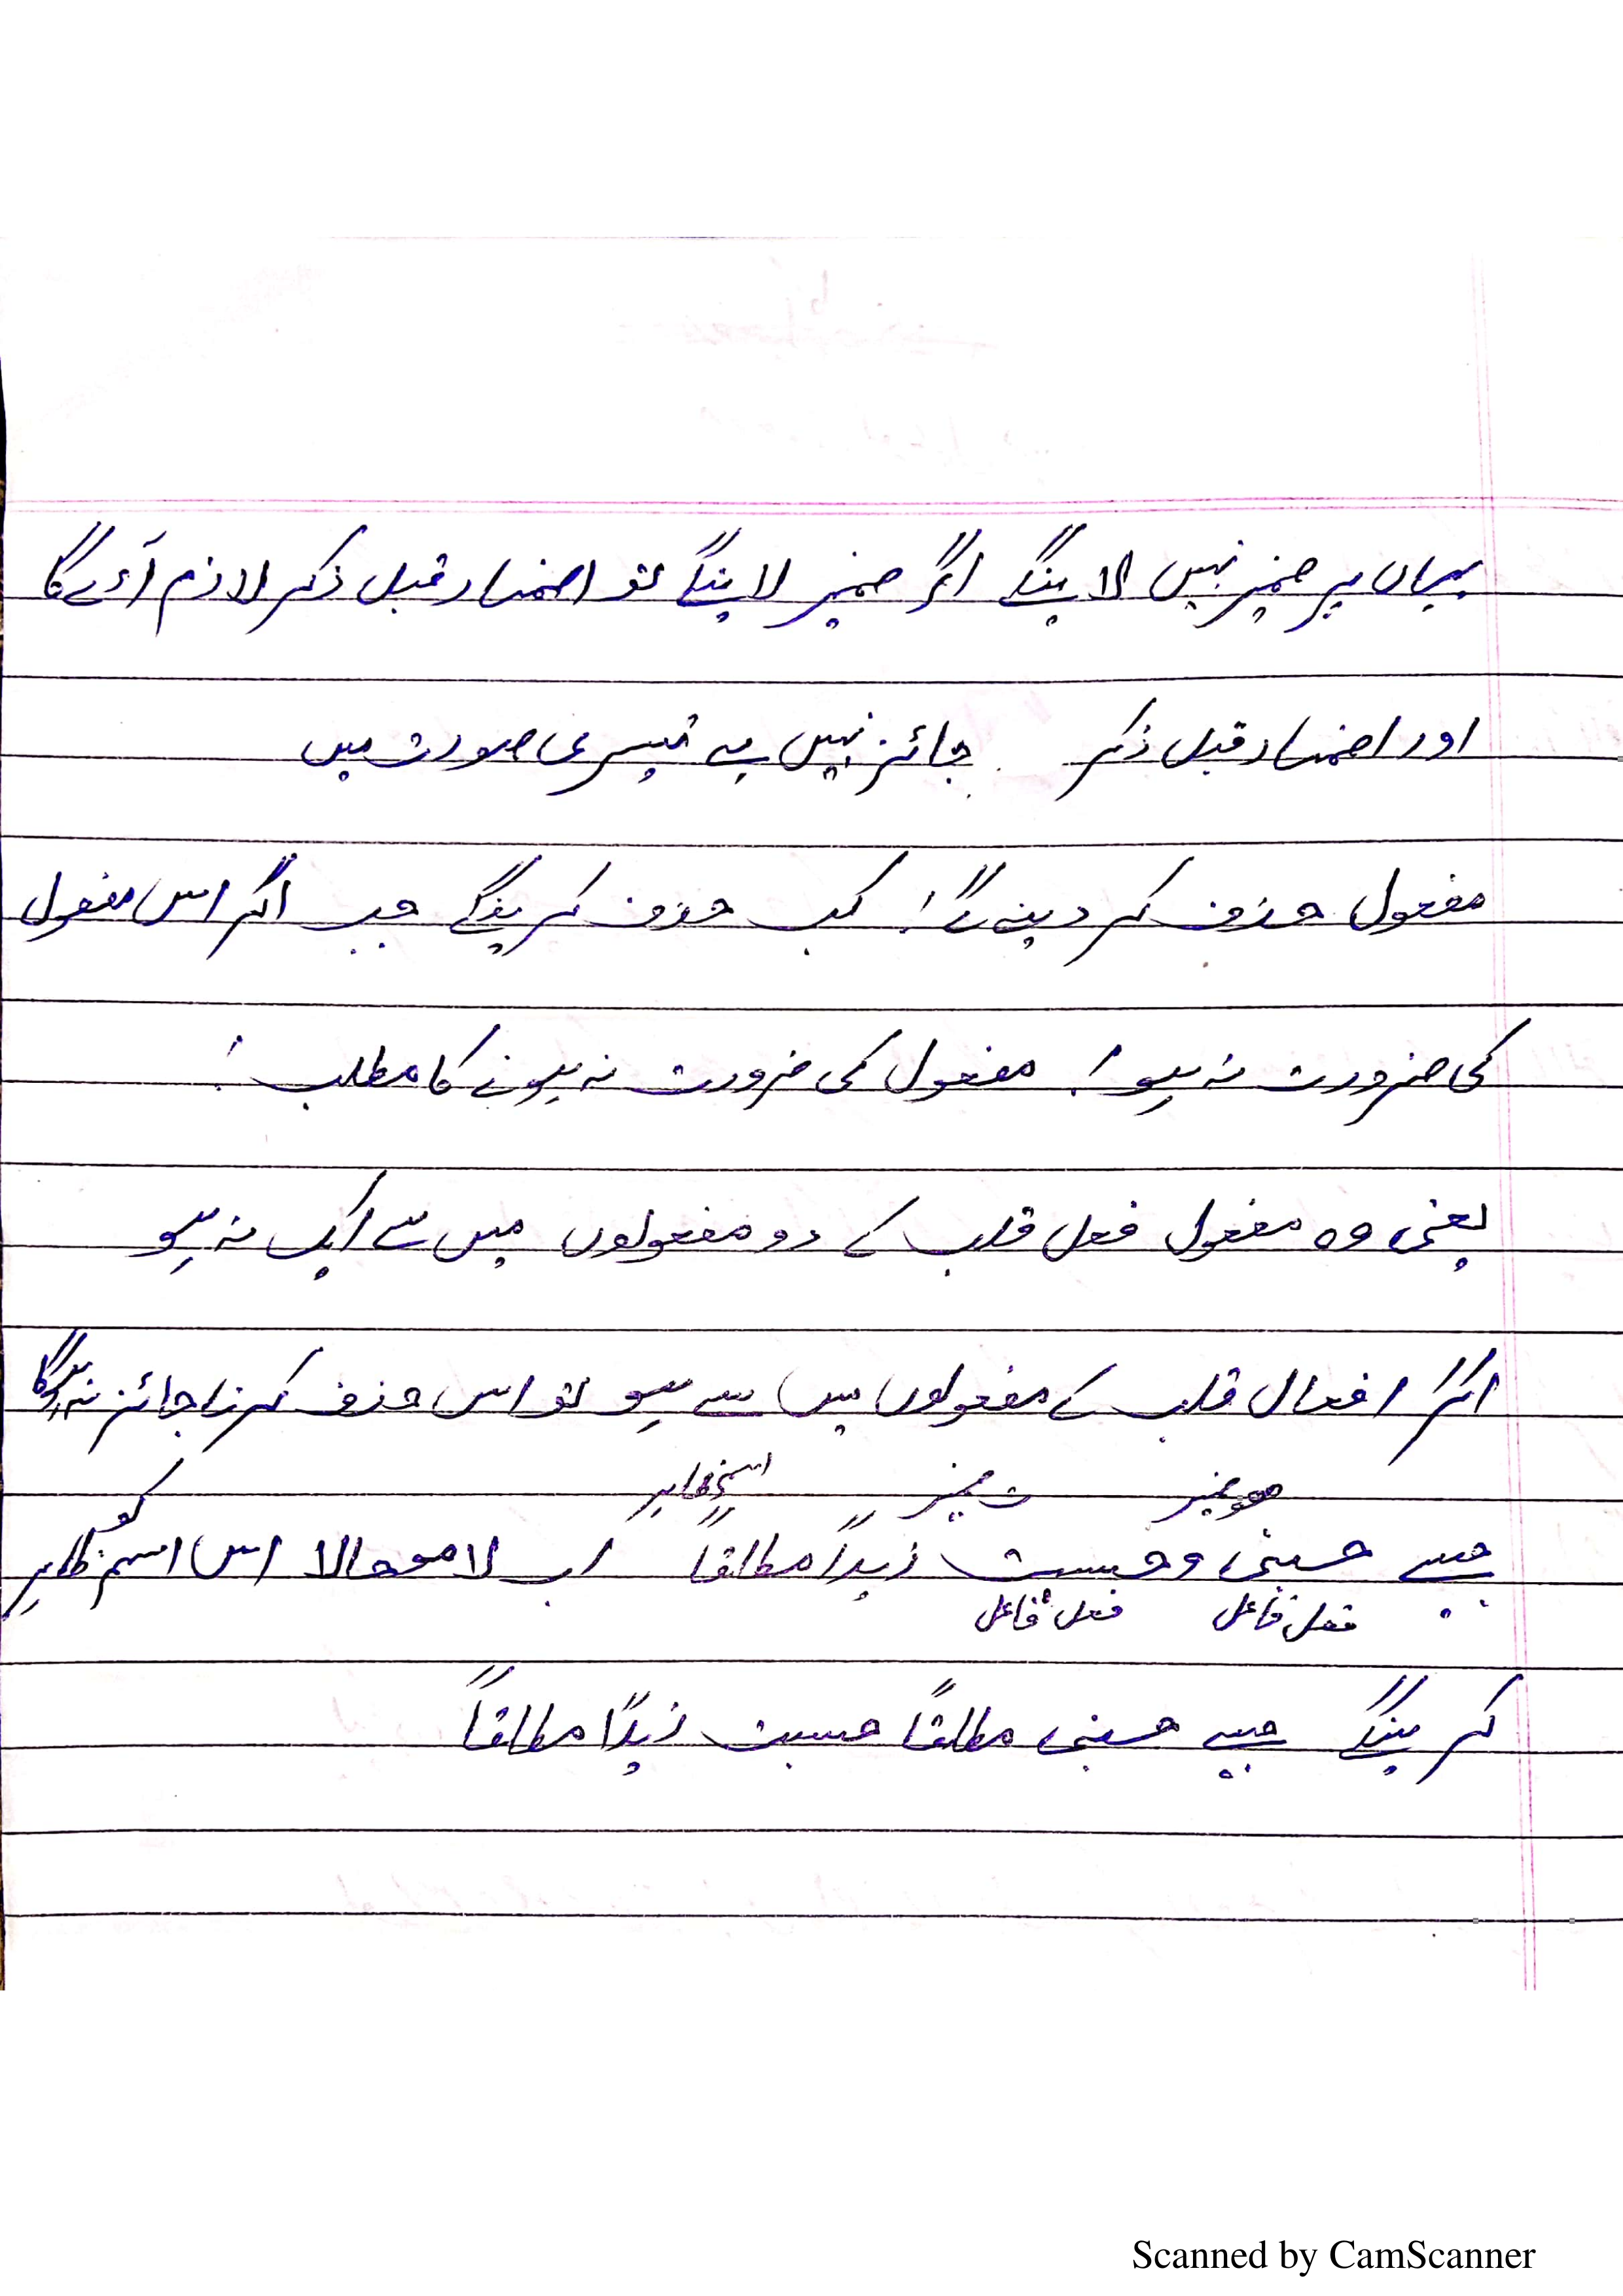 یہاں پر ضمیر نہیں لائینگے اگر ضمیر لائینگے تو اضمار قبل ذکر لازم آئے گا
اور اضمار قبل ذکر جائز نہیں ہے تیسری صورت میں
مفعول حذف کر دینے گے! کب حذف کرینگے جب اگر اس مفعول
کی ضرورت نہ ہو! مفعول کی ضرورت نہ ہونے کا مطلب!
یعنی وہ مفعول فعل قلب کے دو مفعولوں میں سے ایک نہ ہو
اگر افعال قلب کے مفعولوں میں سے ہو تو اس حذف کرنا جائز نہ ہوگا
ھو ضمیر ت ضمیر اسم ظاہر
جیسے حسبنی وحسبت زیداً مطلقاً اب لا موحالا اس اسم ظاہر کو
فعل فاعل فعل فاعل
کرینگے جیسے حسبنی مطلقاً حسبت زیداً مطلقاً
Scanned by CamScanner